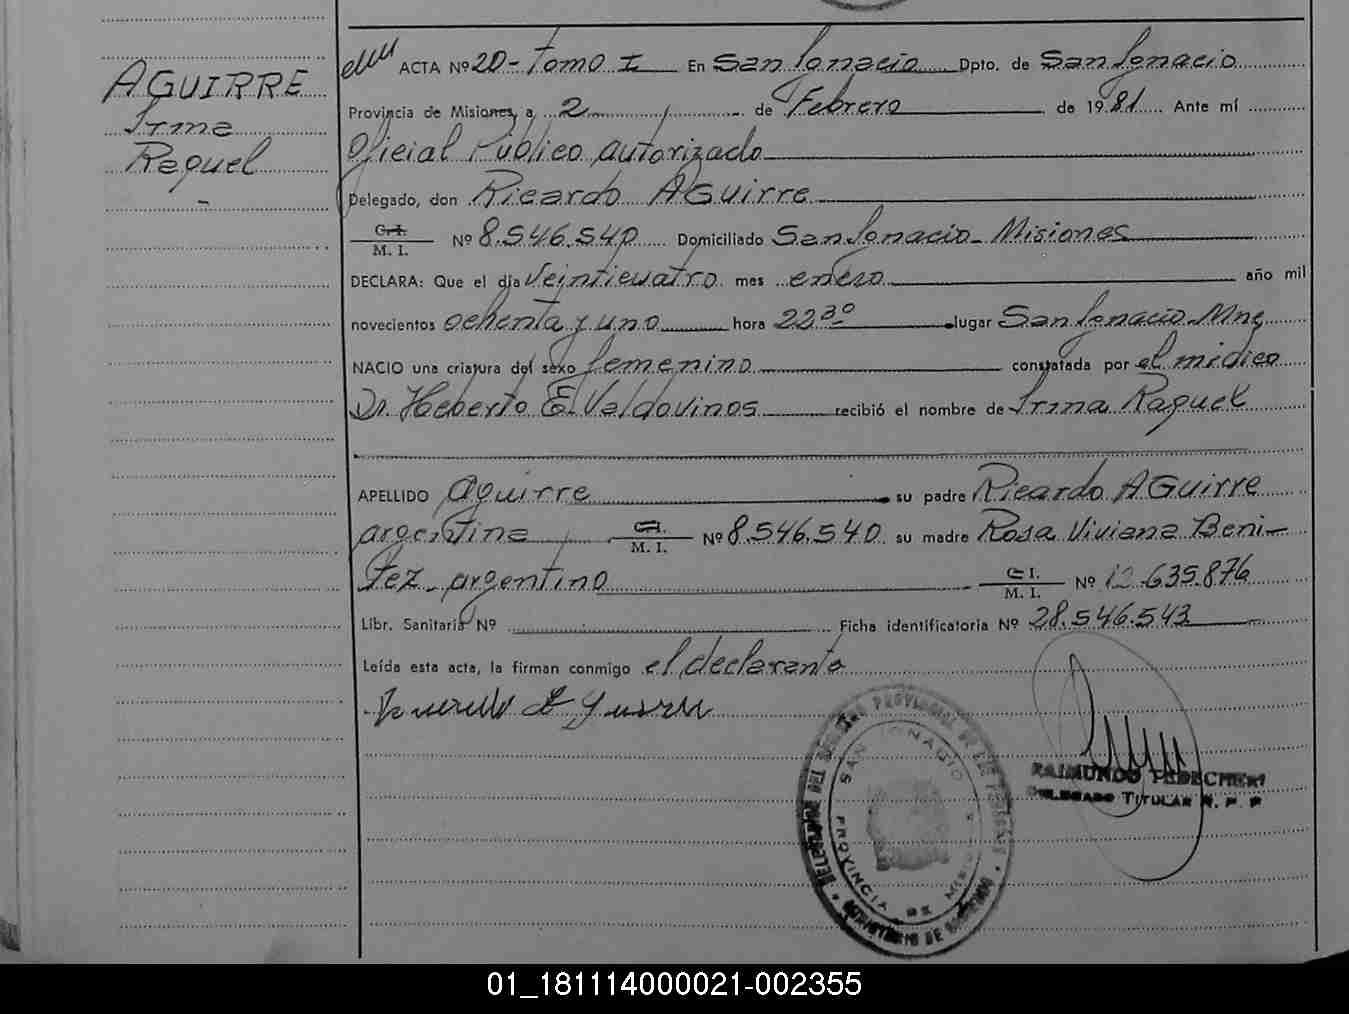 AGUIRRE
Irma
Raquel
-
ACTA Nº 20 - Tomo I En San Ignacio Dpto. de San Ignacio
Provincia de Misiones, a 2 de Febrero de 1981 Ante mí
Oficial Público autorizado
Delegado, don Ricardo AGuirre
C. I.
M. I.
Nº 8.546.540 Domiciliado San Ignacio - Misiones
DECLARA: Que el día Veinticuatro mes enero año mil
novecientos ochenta y uno hora 22 30 lugar San Ignacio Mnes
NACIO una criatura del sexo femenino constatada por el médico
Dr. Heberto E. Valdovinos recibió el nombre de Irma Raquel
APELLIDO Aguirre su padre Ricardo AGuirre
argentino C. I.
M. I.
Nº 8.546.540 su madre Rosa Viviana Beni-
tez - argentino C. I.
M. I.
Nº 12.635.876
Libr. Sanitaria Nº Ficha identificatoria Nº 28.546.543
Leída esta acta, la firman conmigo el declarante
DELEGACION DEL REGISTRO PROVINCIAL DE LAS PERSONAS
SAN IGNACIO
PROVINCIA DE MISIONES
MINISTERIO DE GOBIERNO
RAIMUNDO
DELEGADO TITULAR R. P. P.
01_181114000021-002355